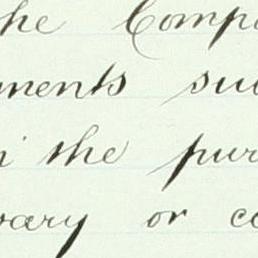 he Comp
ments su
the pur
ary or co